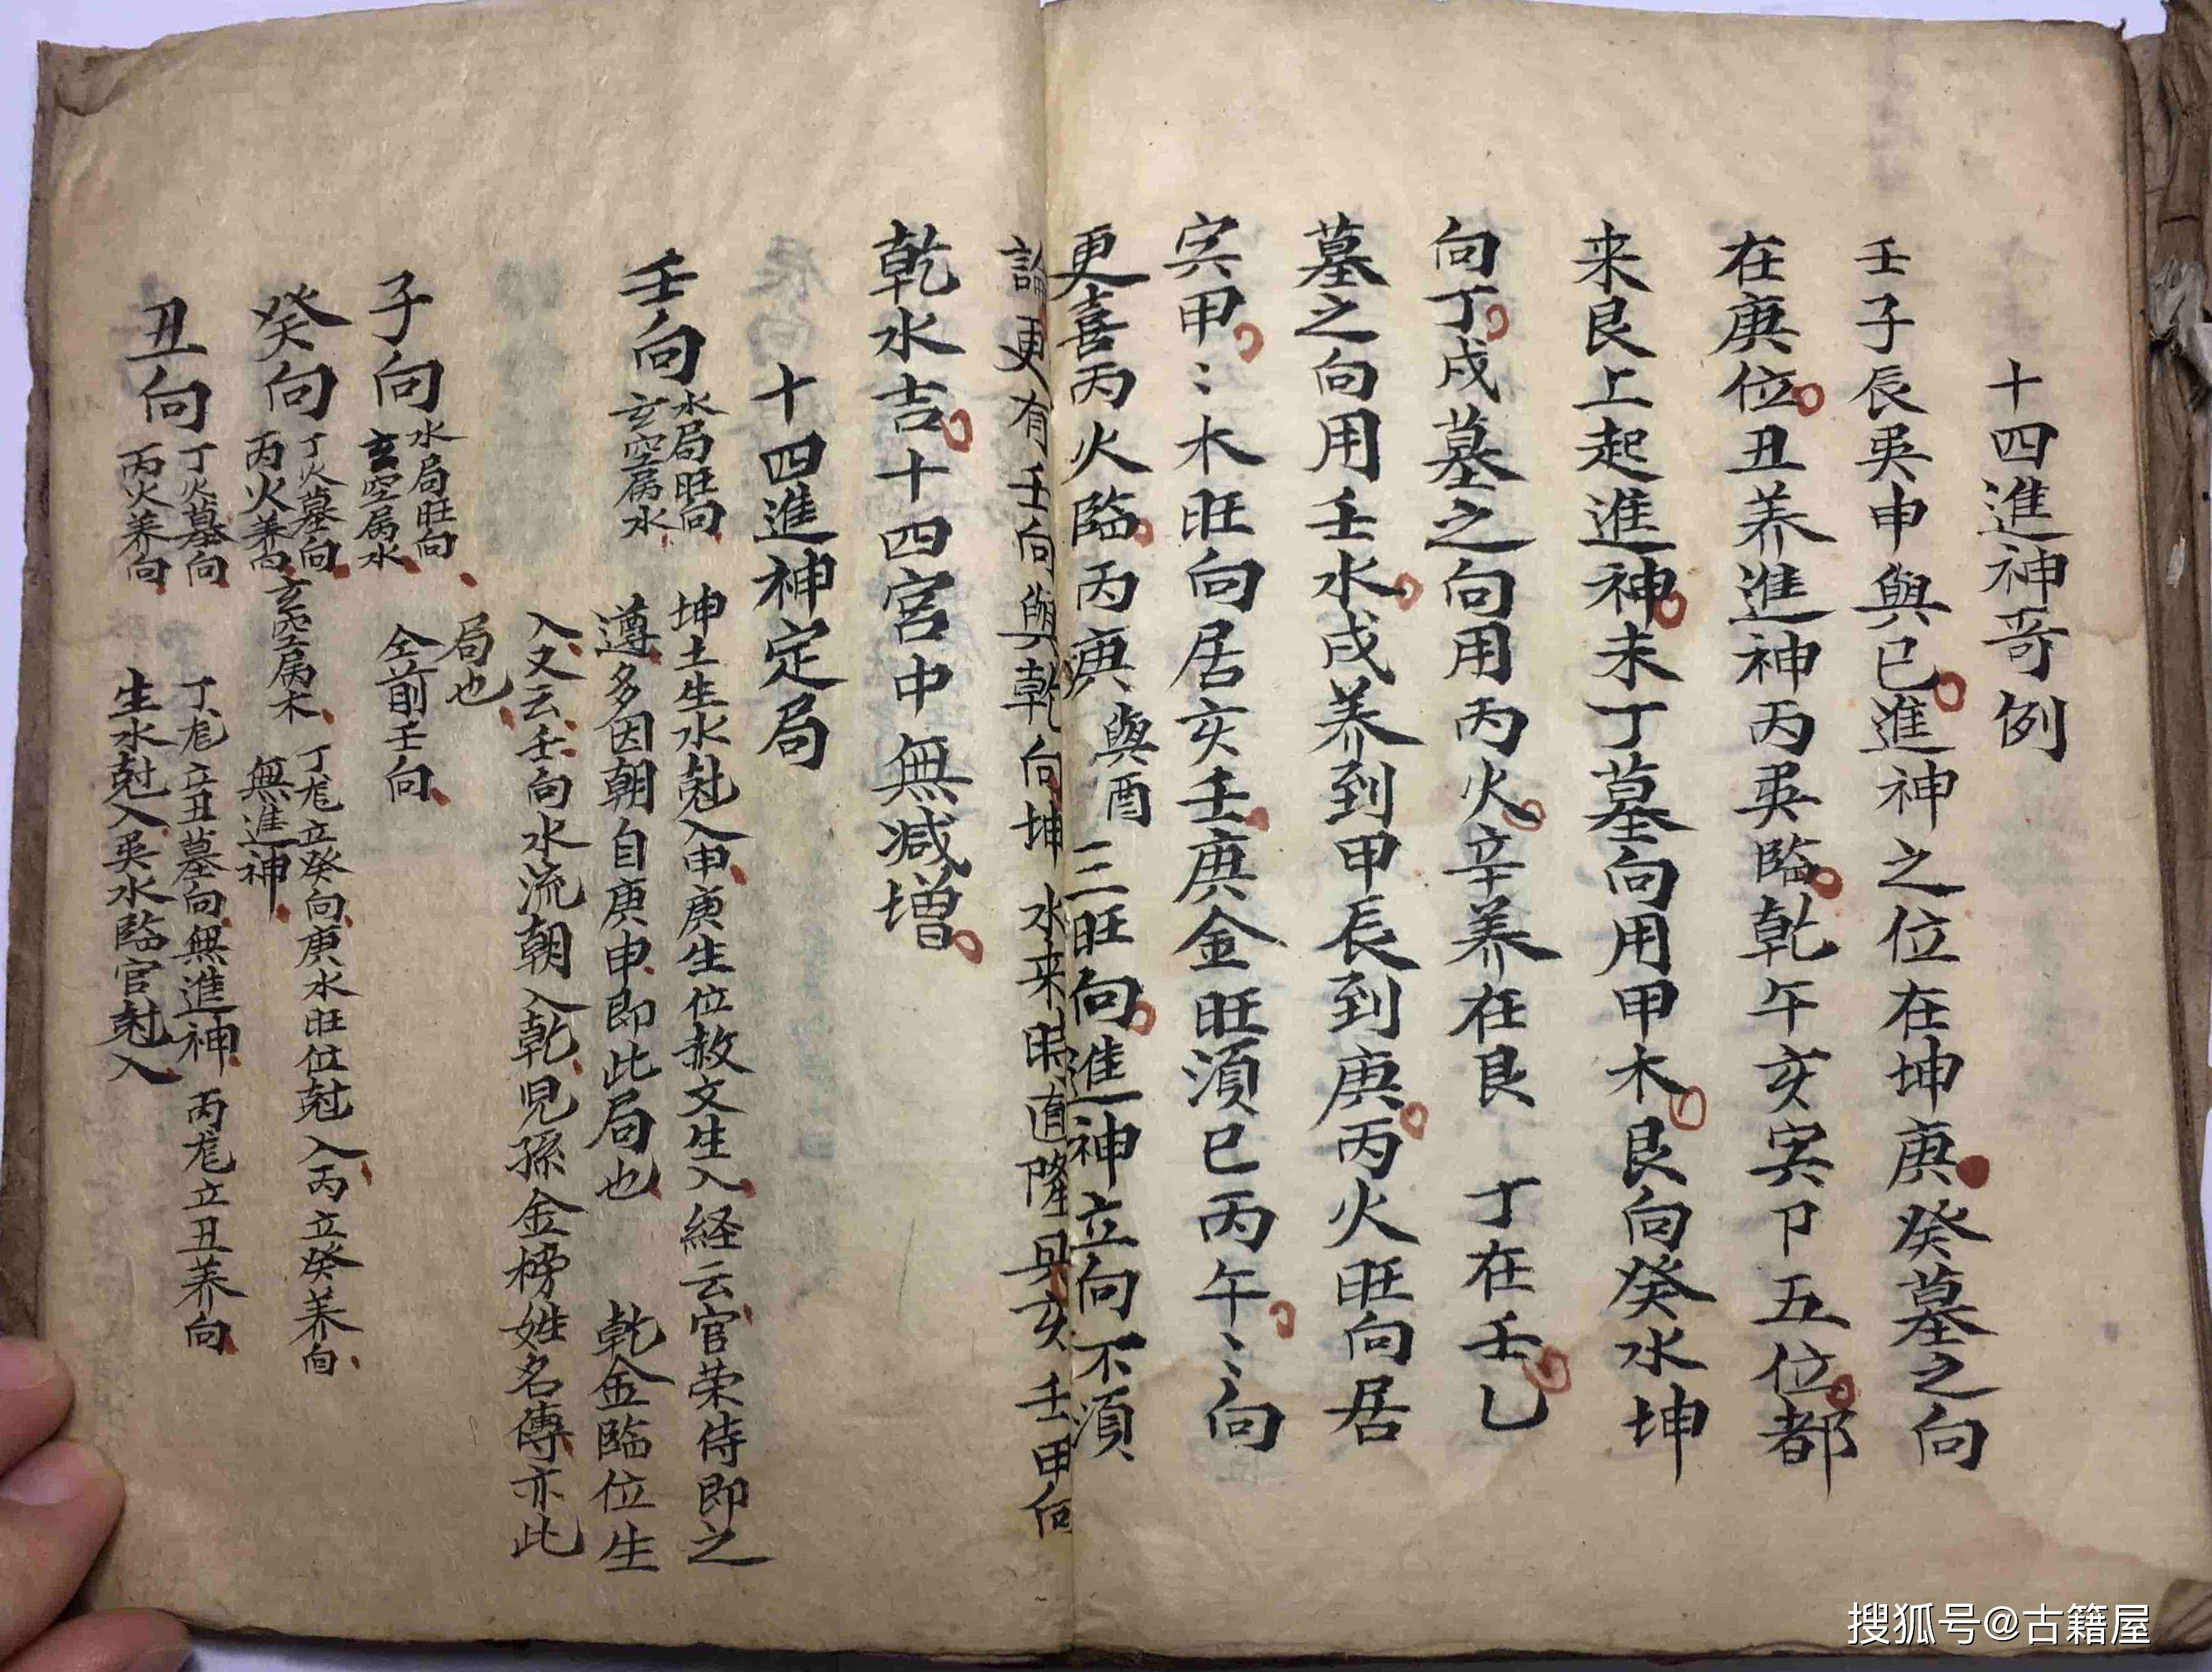 十四進神奇例
壬子辰巽申與巳進神之位在坤庚癸墓之向
在庚位丑养進神丙巽臨乾午亥寅卩五位都
来艮上起進神未丁墓向用甲木艮向癸水坤
向丁戌墓之向用丙火辛养在艮丁在壬乚
墓之向用壬水戌养到甲辰到庚丙火旺向居
寅甲〻木旺向居亥壬庚金旺須巳丙午〻〻向
更喜丙火臨丙庚與酉三旺向進神立向不須
論更有壬向與乾向坤水来時直隆丑亥壬甲向
乾水吉十四宮中無减增
十四進神定局
壬向水局旺向
玄空属水
坤土生水尅入申庚生位赦文生入経云官荣侍即之
遵多因朝自庚申即此局也乾金臨位生
入又云壬向水流朝入乾児孫金榜姓名傳亦此
局也
子向水局旺向
玄空属水
仝前壬向
癸向丁火墓向
丙火养向玄空属木
丁龙立癸向庚水旺位尅入丙立癸养向
無進神
丑向丁火墓向
丙火养向
丁龙立丑墓向無進神丙龙立丑养向
生水尅入巽水臨官尅入
搜狐号@古籍屋